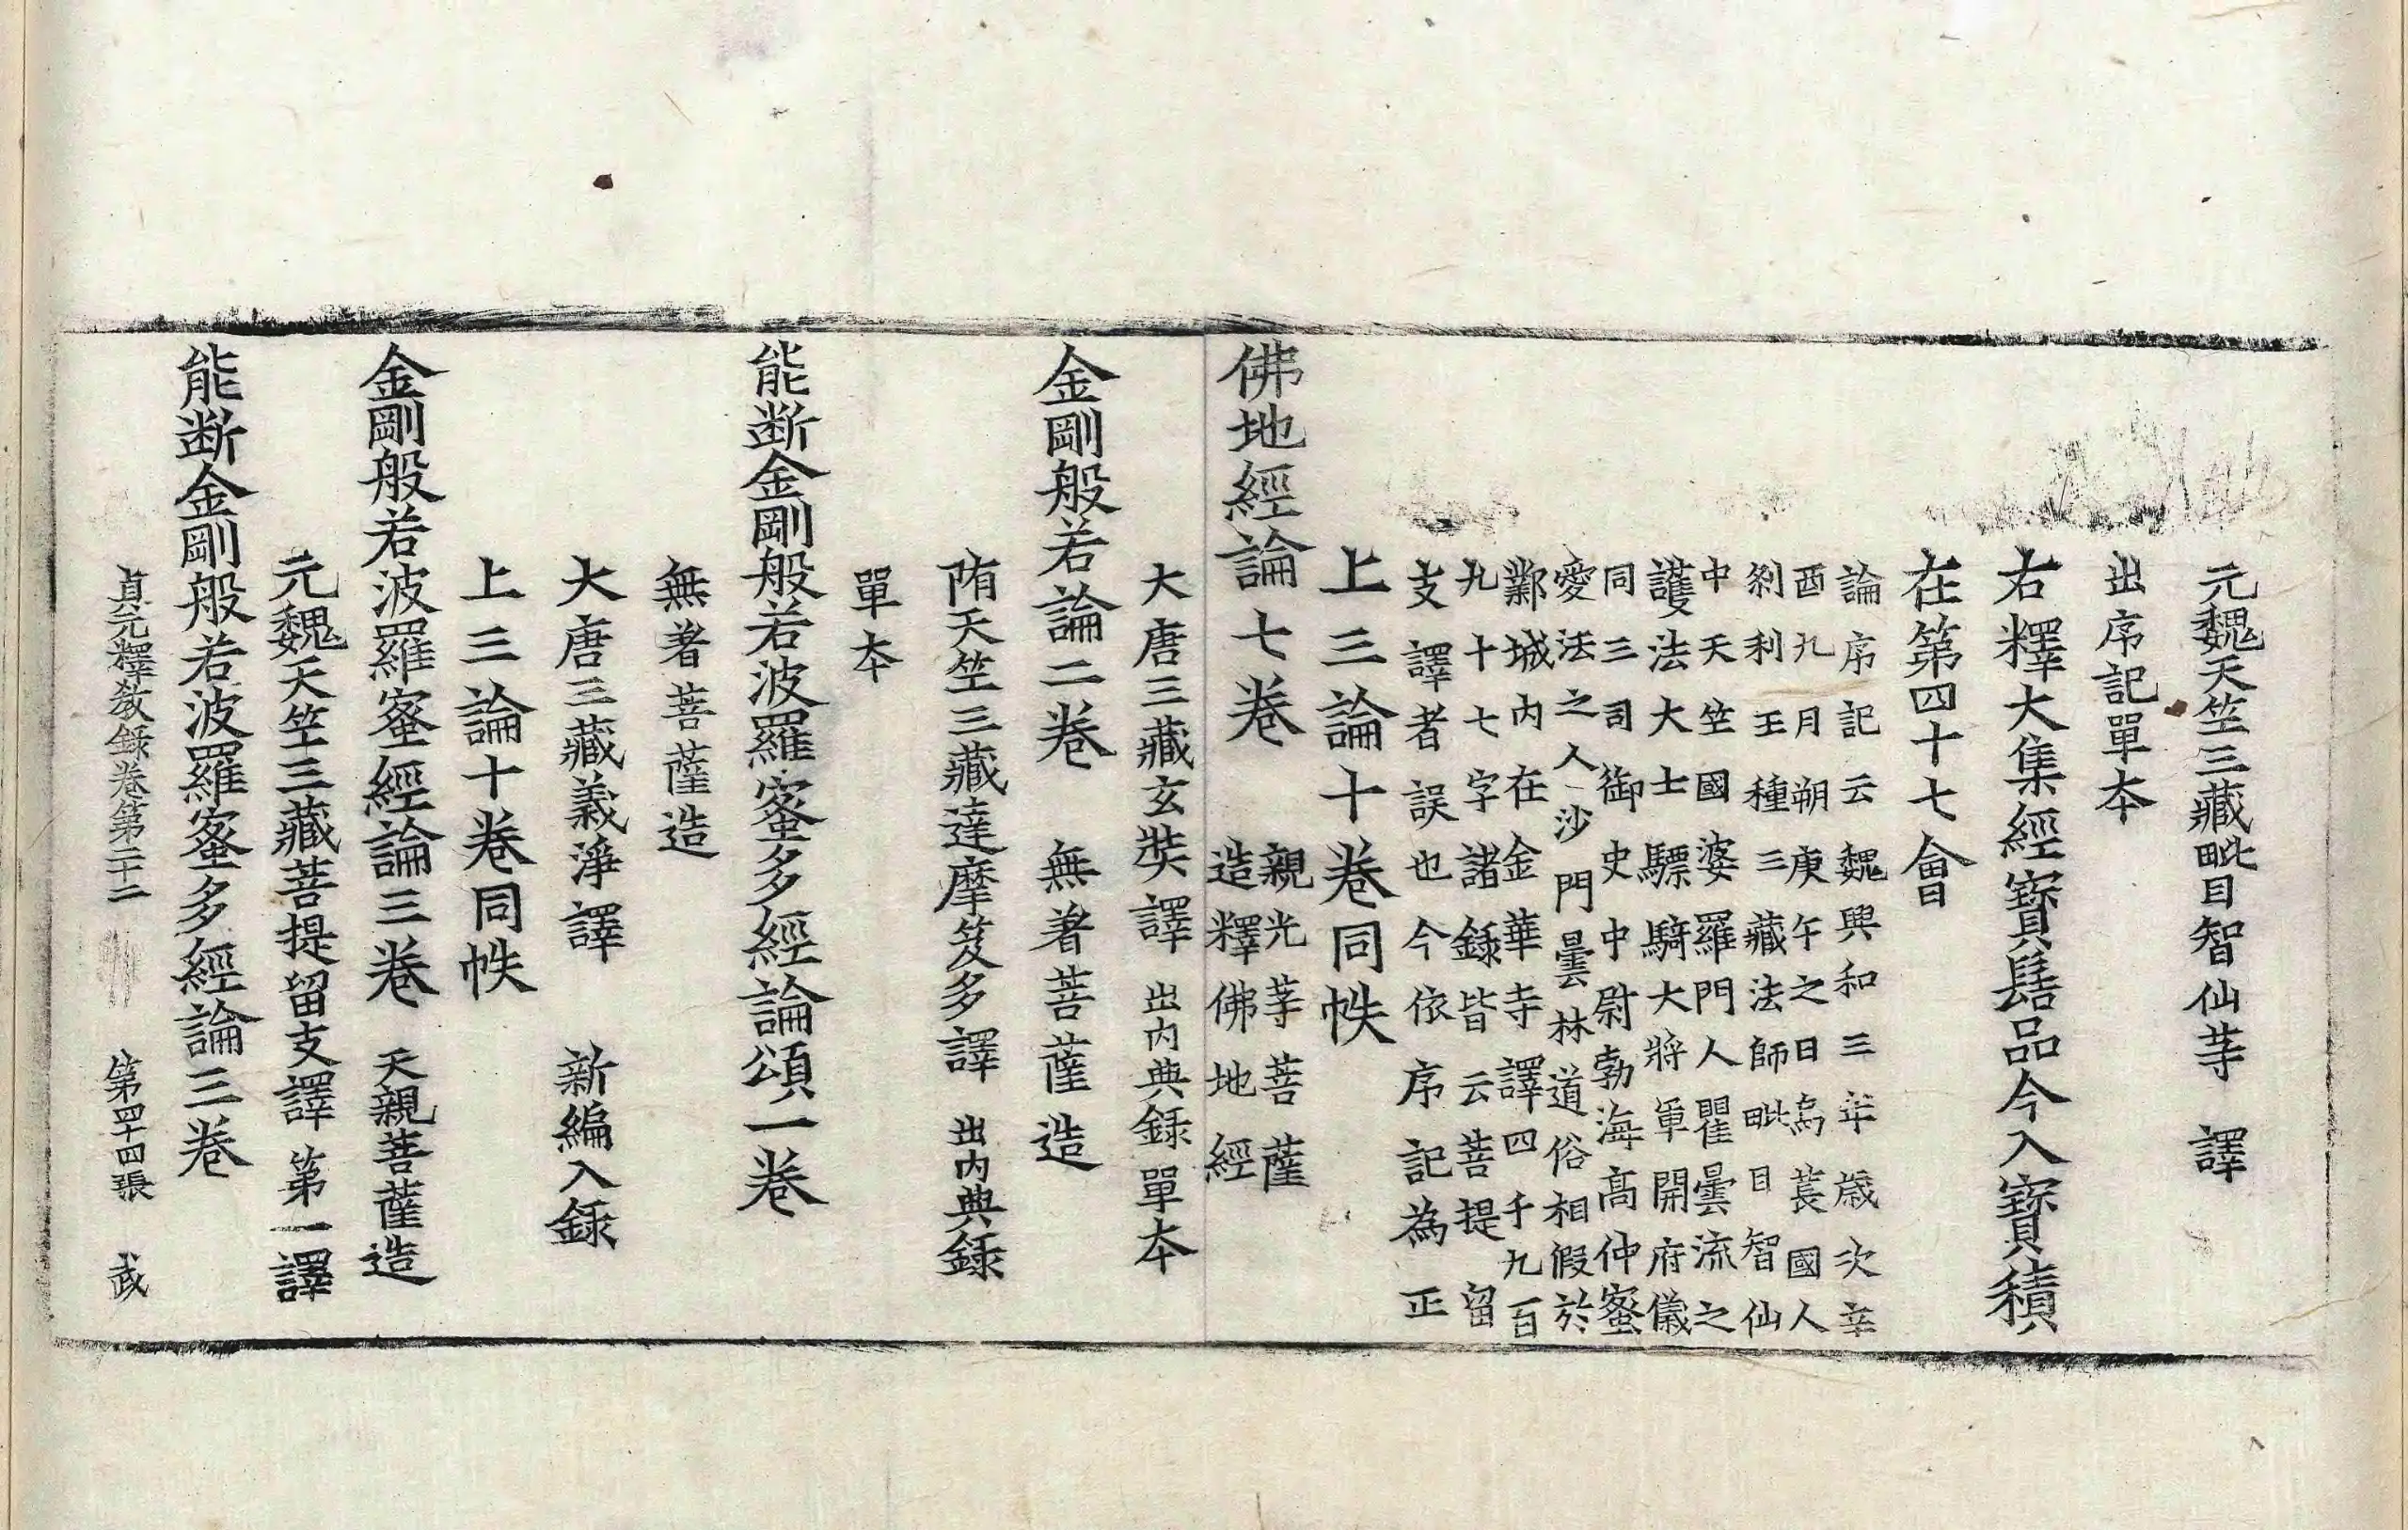 元魏天竺三藏毗目智仙等譯
出序記單本
右釋大集經寶髻品今入寶積
在第四十七會
論序記云魏興和三年歲次辛
酉九月朔庚午之日烏萇國人
剎利王種三藏法師毗目智仙
中天竺國婆羅門人瞿曇流之
護法大士驃騎大將軍開府儀
同三司御史中尉勃海高仲蜜
愛法之人沙門曇林道俗相假於
鄴城內在金華寺譯四千九百
九十七字諸錄皆云菩提留
支譯者誤也今依序記為正
上三論十卷同帙
佛地經論七卷 親光等菩薩
造釋佛地經
大唐三藏玄奘譯 出內典錄單本
金剛般若論二卷 無著菩薩造
隋天竺三藏達摩笈多譯 出內典錄
單本
能斷金剛般若波羅蜜多經論頌一卷
無著菩薩造
大唐三藏義淨譯 新編入錄
上三論十卷同帙
金剛般若波羅蜜經論三卷 天親菩薩造
元魏天竺三藏菩提留支譯 第一譯
能斷金剛般若波羅蜜多經論三卷
貞元釋教錄卷第二十二 第四十四張 武